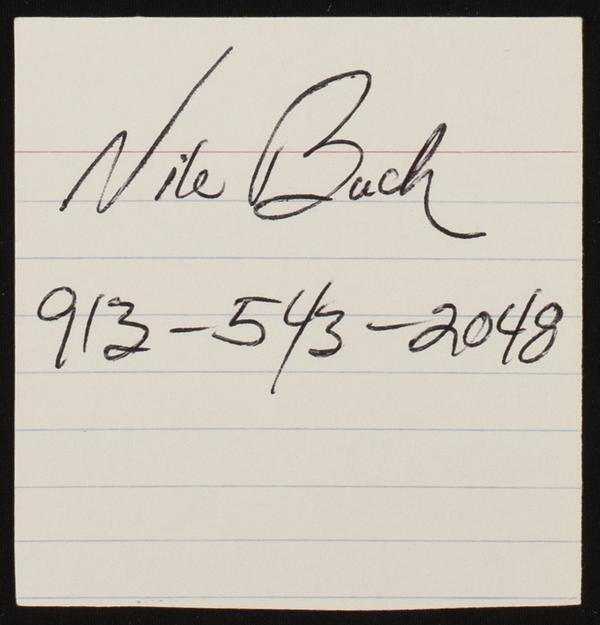 Nile Buch
913-543-2048